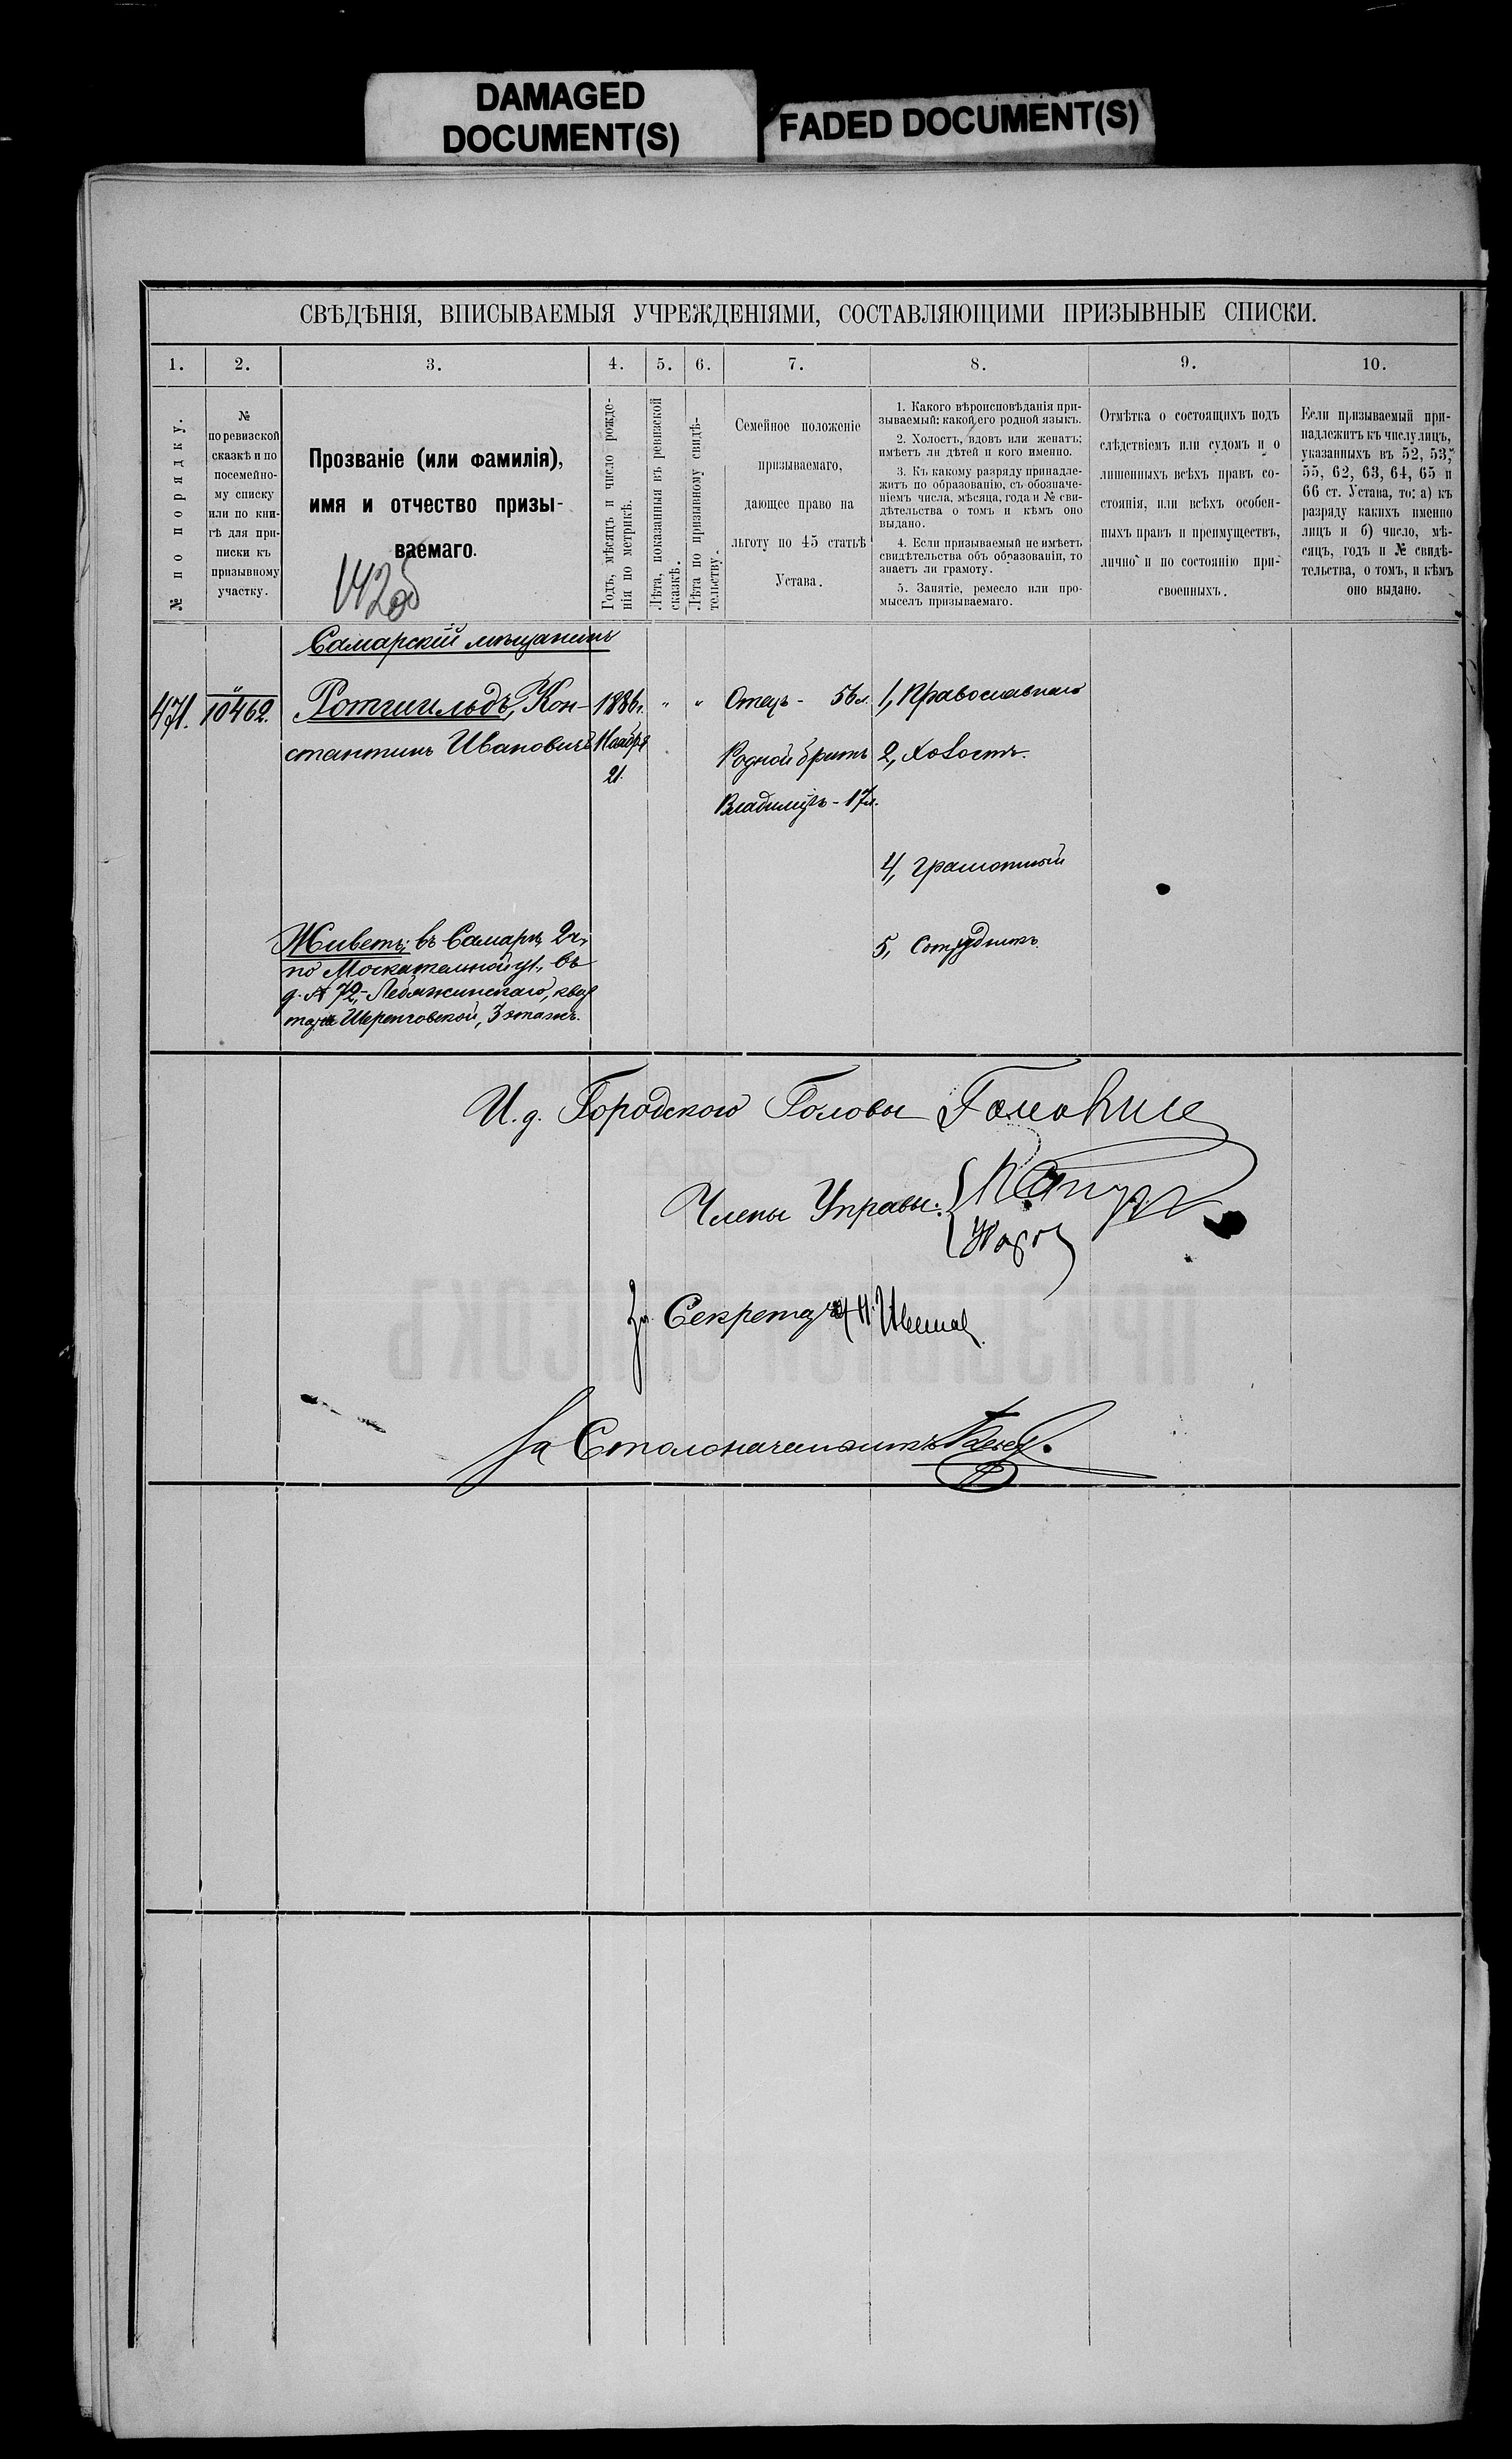 DAMAGED
DOCUMENT(S)
FADED DOCUMENT(S)
СВѢДѢНІЯ, ВПИСЫВАЕМЫЯ УЧРЕЖДЕНІЯМИ, СОСТАВЛЯЮЩИМИ ПРИЗЫВНЫЕ СПИСКИ.
1. 2. 3. 4. 5. 6. 7. 8. 9. 10.
№ по порядку.
№
по ревизской
сказкѣ и по
посемейно-
му списку
или по кни-
гѣ для при-
писки къ
призывному
участку.
Прозваніе (или фамилія),
имя и отчество призы-
ваемаго.
Годъ, мѣсяцъ и число рожде-
нія по метрикѣ.
Лѣта, показанныя въ ревизской
сказкѣ.
Лѣта по призывному свидѣ-
тельству.
Семейное положеніе
призываемаго,
дающее право на
льготу по 45 статьѣ
Устава.
1. Какого вѣроисповѣданія при-
зываемый; какой его родной языкъ.
2. Холостъ, вдовъ или женатъ;
имѣетъ ли дѣтей и кого именно.
3. Къ какому разряду принадле-
житъ по образованію, съ обозначе-
ніемъ числа, мѣсяца, года и № сви-
дѣтельства о томъ и кѣмъ оно
выдано.
4. Если призываемый не имѣетъ
свидѣтельства объ образованіи, то
знаетъ ли грамоту.
5. Занятіе, ремесло или про-
мыселъ призываемаго.
Отмѣтка о состоящихъ подъ
слѣдствіемъ или судомъ и о
лишенныхъ всѣхъ правъ со-
стоянія, или всѣхъ особен-
ныхъ правъ и преимуществъ,
лично и по состоянію при-
своенныхъ.
Если призываемый при-
надлежитъ къ числу лицъ,
указанныхъ въ 52, 53,
55, 62, 63, 64, 65 и
66 ст. Устава, то: а) къ
разряду какихъ именно
лицъ и б) число, мѣ-
сяцъ, годъ и № свидѣ-
тельства, о томъ, и кѣмъ
оно выдано.
Самарскій мѣщанинъ
471. 10462. Ротшильдъ, Кон- 1886г. " " Отецъ - 56 л. 1, Православнаго
стантинъ Ивановичъ Ноября Родной братъ 2, Холостъ.
21. Владиміръ - 17 л.
4, Грамотный
Живетъ: въ Самарѣ, 2 ч, 5, Сотрудникъ.
по Москательной ул., въ
д. № 72, Лебяжинскаго,
3 этажъ.
И. д. Городского Головы
Члены Управы:
За Секретаря
За Столоначальника